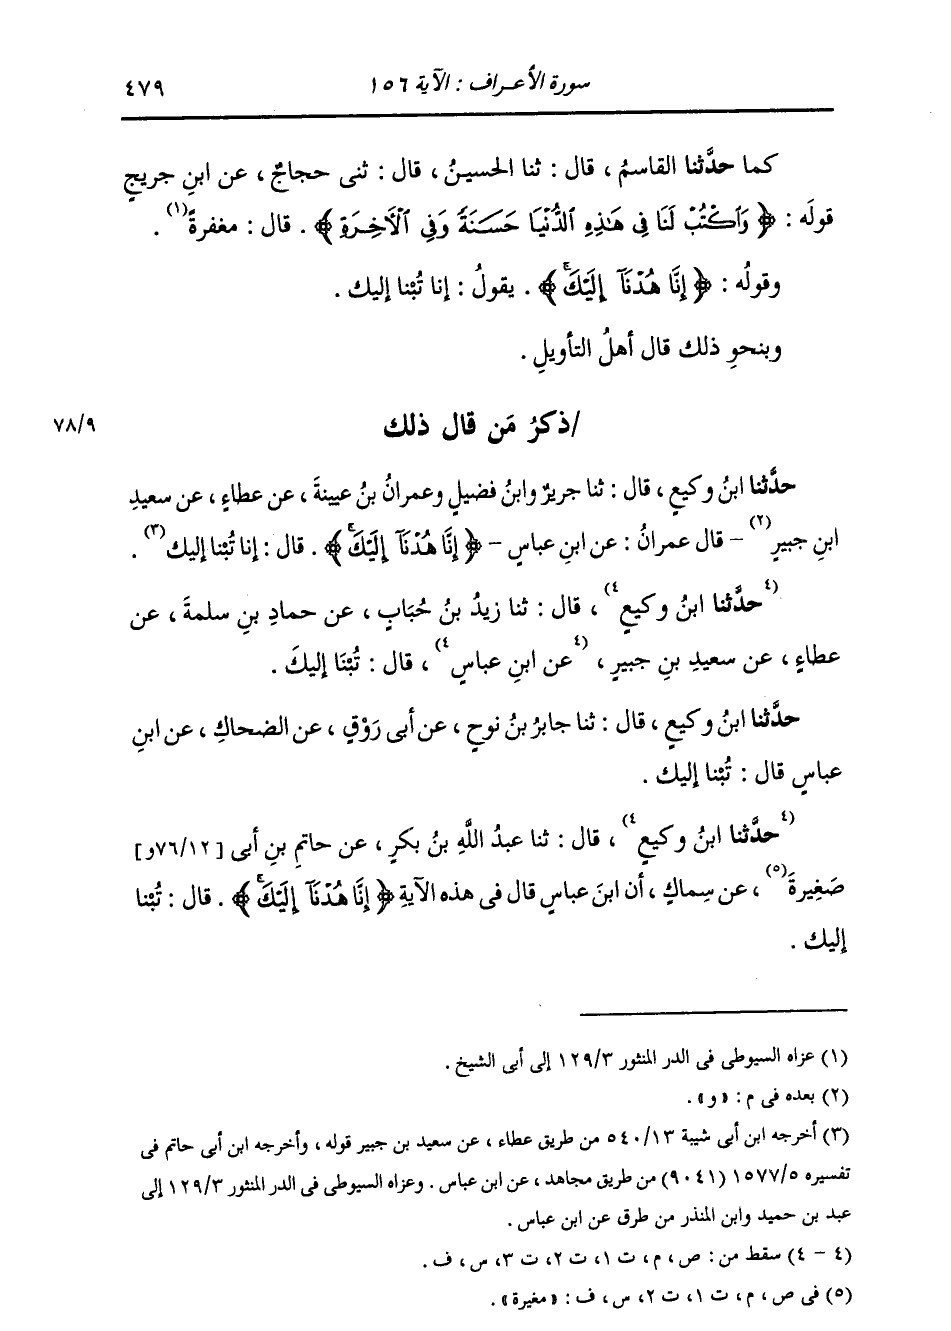 سورة الأعراف : الآية ١٥٦
٤٧٩
كما حدَّثنا القاسمُ ، قال : ثنا الحسينُ ، قال : ثنى حجاجٌ ، عن ابنِ جريجٍ
قولَه : ﴿ وَٱكْتُبْ لَنَا فِى هَـٰذِهِ ٱلدُّنْيَا حَسَنَةً وَفِى ٱلْآخِرَةِ ﴾ . قال : مغفرةً(١) .
وقولُه : ﴿ إِنَّا هُدْنَآ إِلَيْكَ ۚ ﴾ . يقولُ : إنا تُبْنا إليك .
وبنحوِ ذلك قال أهلُ التأويلِ .
/ذكرُ مَن قال ذلك
٧٨/٩
حدَّثنا ابنُ وكيعٍ ، قال : ثنا جريرٌ وابنُ فضيلٍ وعمرانُ بنُ عيينةَ ، عن عطاءٍ ، عن سعيدِ
ابنِ جبيرٍ(٢) - قال عمرانُ : عن ابنِ عباسٍ - ﴿ إِنَّا هُدْنَآ إِلَيْكَ ۚ ﴾ . قال : إنا تُبْنا إليك(٣) .
(٤حدَّثنا ابنُ وكيعٍ٤) ، قال : ثنا زيدُ بنُ حُبَابٍ ، عن حمادِ بنِ سلمةَ ، عن
عطاءٍ ، عن سعيدِ بنِ جبيرٍ ، (٤عن ابنِ عباسٍ٤) ، قال : تُبْنَا إليكَ .
حدَّثنا ابنُ وكيعٍ ، قال : ثنا جابرُ بنُ نوحٍ ، عن أبى رَوْقٍ ، عن الضحاكِ ، عن ابنِ
عباسٍ قال : تُبْنا إليك .
(٤حدَّثنا ابنُ وكيعٍ٤) ، قال : ثنا عبدُ اللَّهِ بنُ بكرٍ ، عن حاتمِ بنِ أبى [٧٦/١٢و]
صَغِيرةَ(٥) ، عن سِماكٍ ، أن ابنَ عباسٍ قال فى هذه الآيةِ ﴿ إِنَّا هُدْنَآ إِلَيْكَ ۚ ﴾ . قال : تُبْنا
إليك .
(١) عزاه السيوطى فى الدر المنثور ١٢٩/٣ إلى أبى الشيخ .
(٢) بعده فى م : «و» .
(٣) أخرجه ابن أبى شيبة ٥٤٠/١٣ من طريق عطاء ، عن سعيد بن جبير قوله ، وأخرجه ابن أبى حاتم فى
تفسيره ١٥٧٧/٥ (٩٠٤١) من طريق مجاهد ، عن ابن عباس . وعزاه السيوطى فى الدر المنثور ١٢٩/٣ إلى
عبد بن حميد وابن المنذر من طرق عن ابن عباس .
(٤ - ٤) سقط من : ص ، م ، ت ١ ، ت ٢ ، ت ٣ ، س ، ف .
(٥) فى ص ، م ، ت ١ ، ت ٢ ، س ، ف : «مغيرة» .